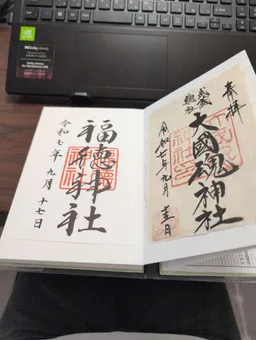 奉拝
武蔵
總社
大國魂神社
令和七年九月
福徳神社
令和七年 九月 十七日